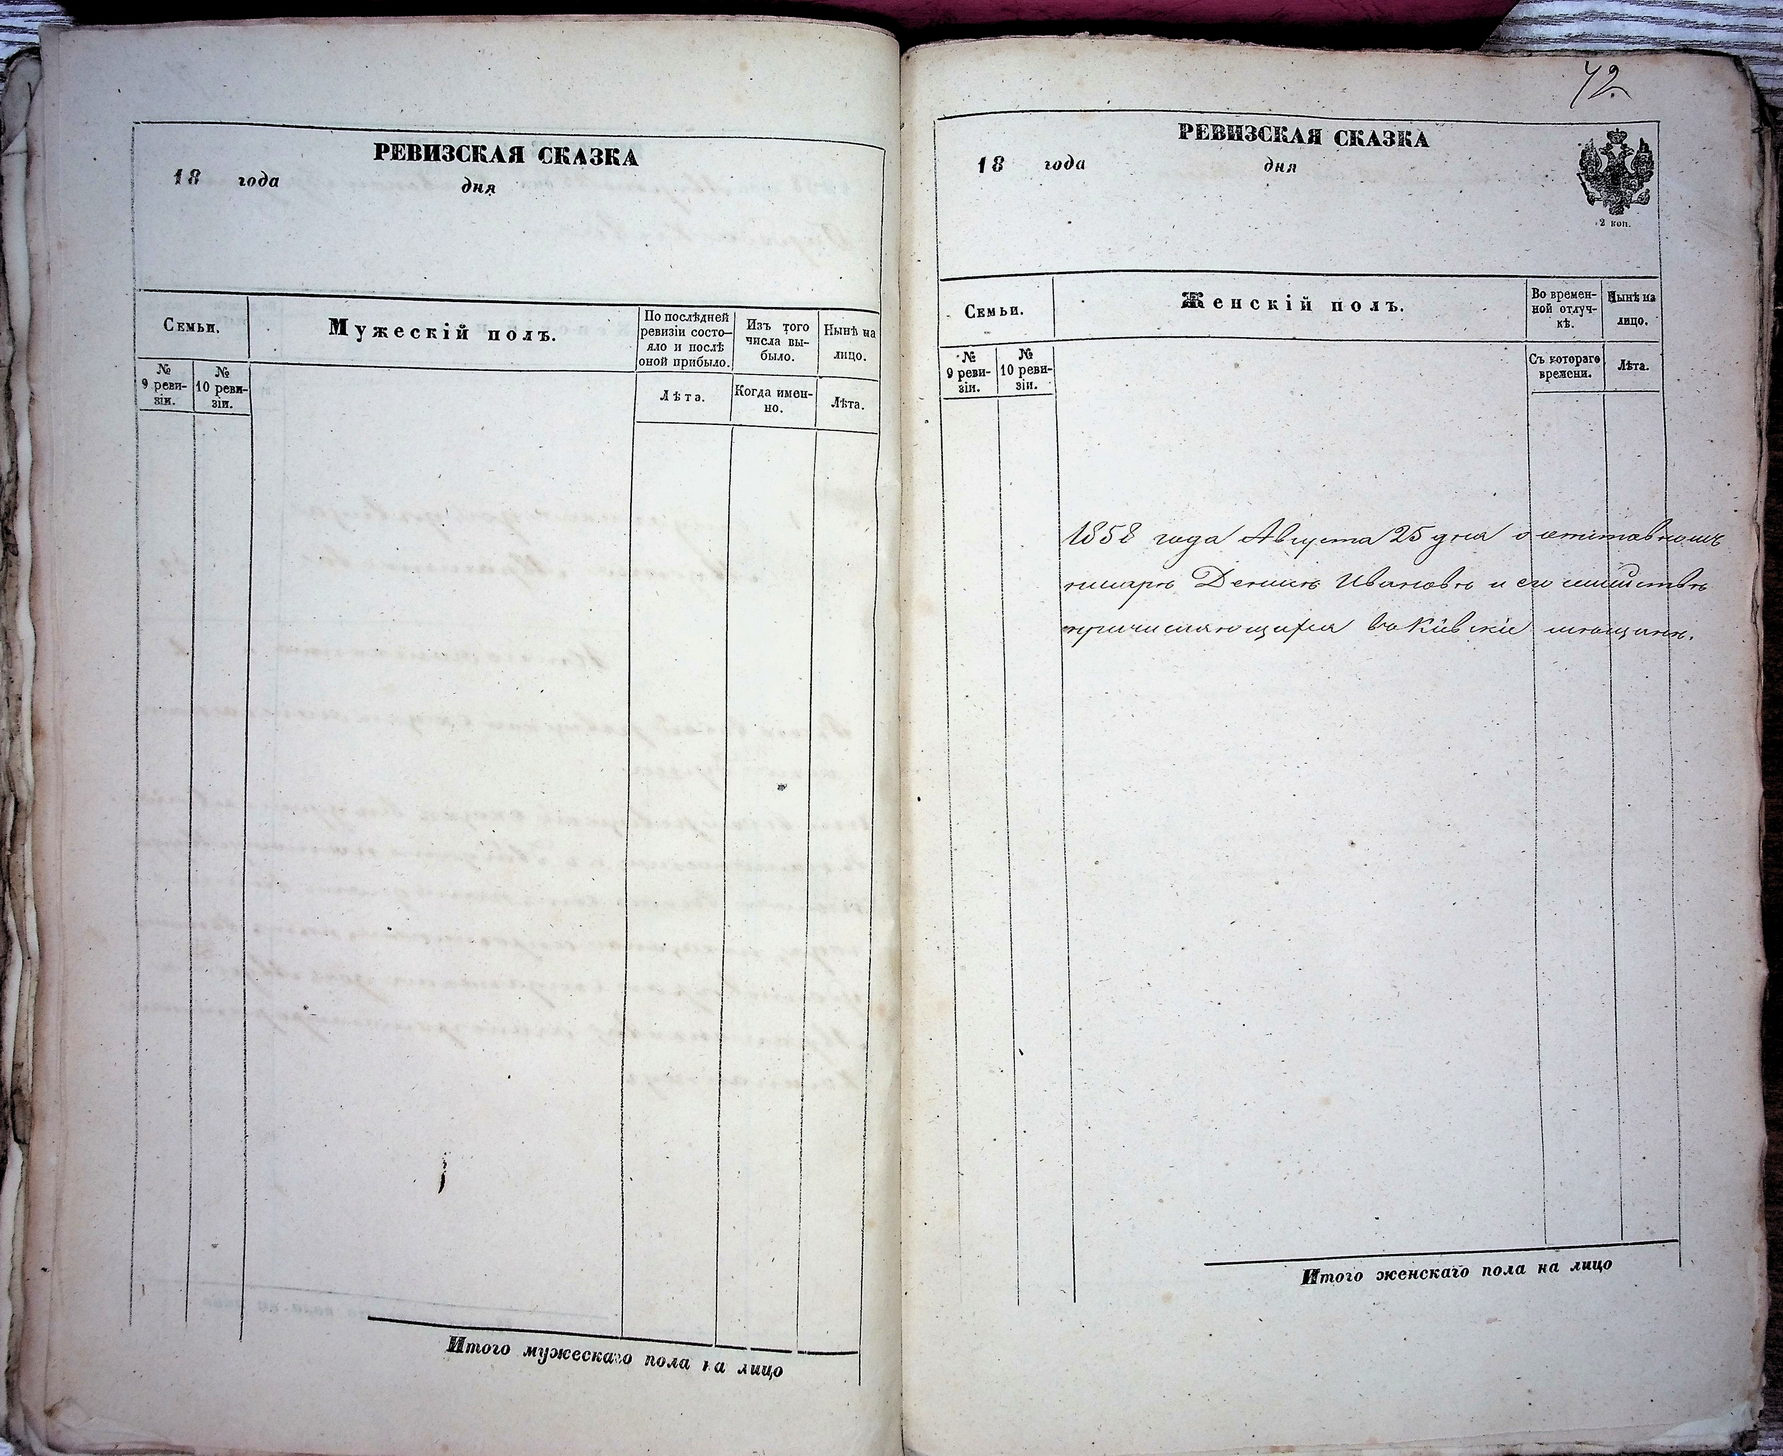 РЕВИЗСКАЯ СКАЗКА
18 года дня
Семьи.
Мужескій полъ.
По послѣдней ревизіи состо-
яло и послѣ
оной прибыло.
Изъ того
числа вы-
было.
Нынѣ на
лицо.
№
9 реви-
зіи.
№
10 реви-
зіи.
Лѣта.
Когда имен-
но.
Лѣта.
Итого мужескаго пола на лицо
42.
РЕВИЗСКАЯ СКАЗКА
18 года дня
2 коп.
Семьи.
Женскій полъ.
Во времен-
ной отлуч-
кѣ.
Нынѣ на
лицо.
№
9 реви-
зіи.
№
10 реви-
зіи.
Съ котораго
времени.
Лѣта.
1858 года Августа 25 дня о отставномъ
писарѣ Денисѣ Ивановѣ и его семействѣ
причисляющихся въ Кіевскіе мѣщане.
Итого женскаго пола на лицо